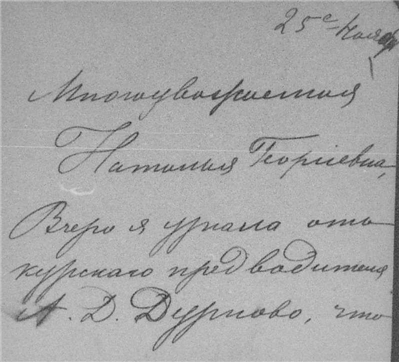 25е Ноября
Многоуважаемая
Наталья Георгіевна,
Вчера я узнала отъ
курскаго предводителя
А. Д. Дурново, что